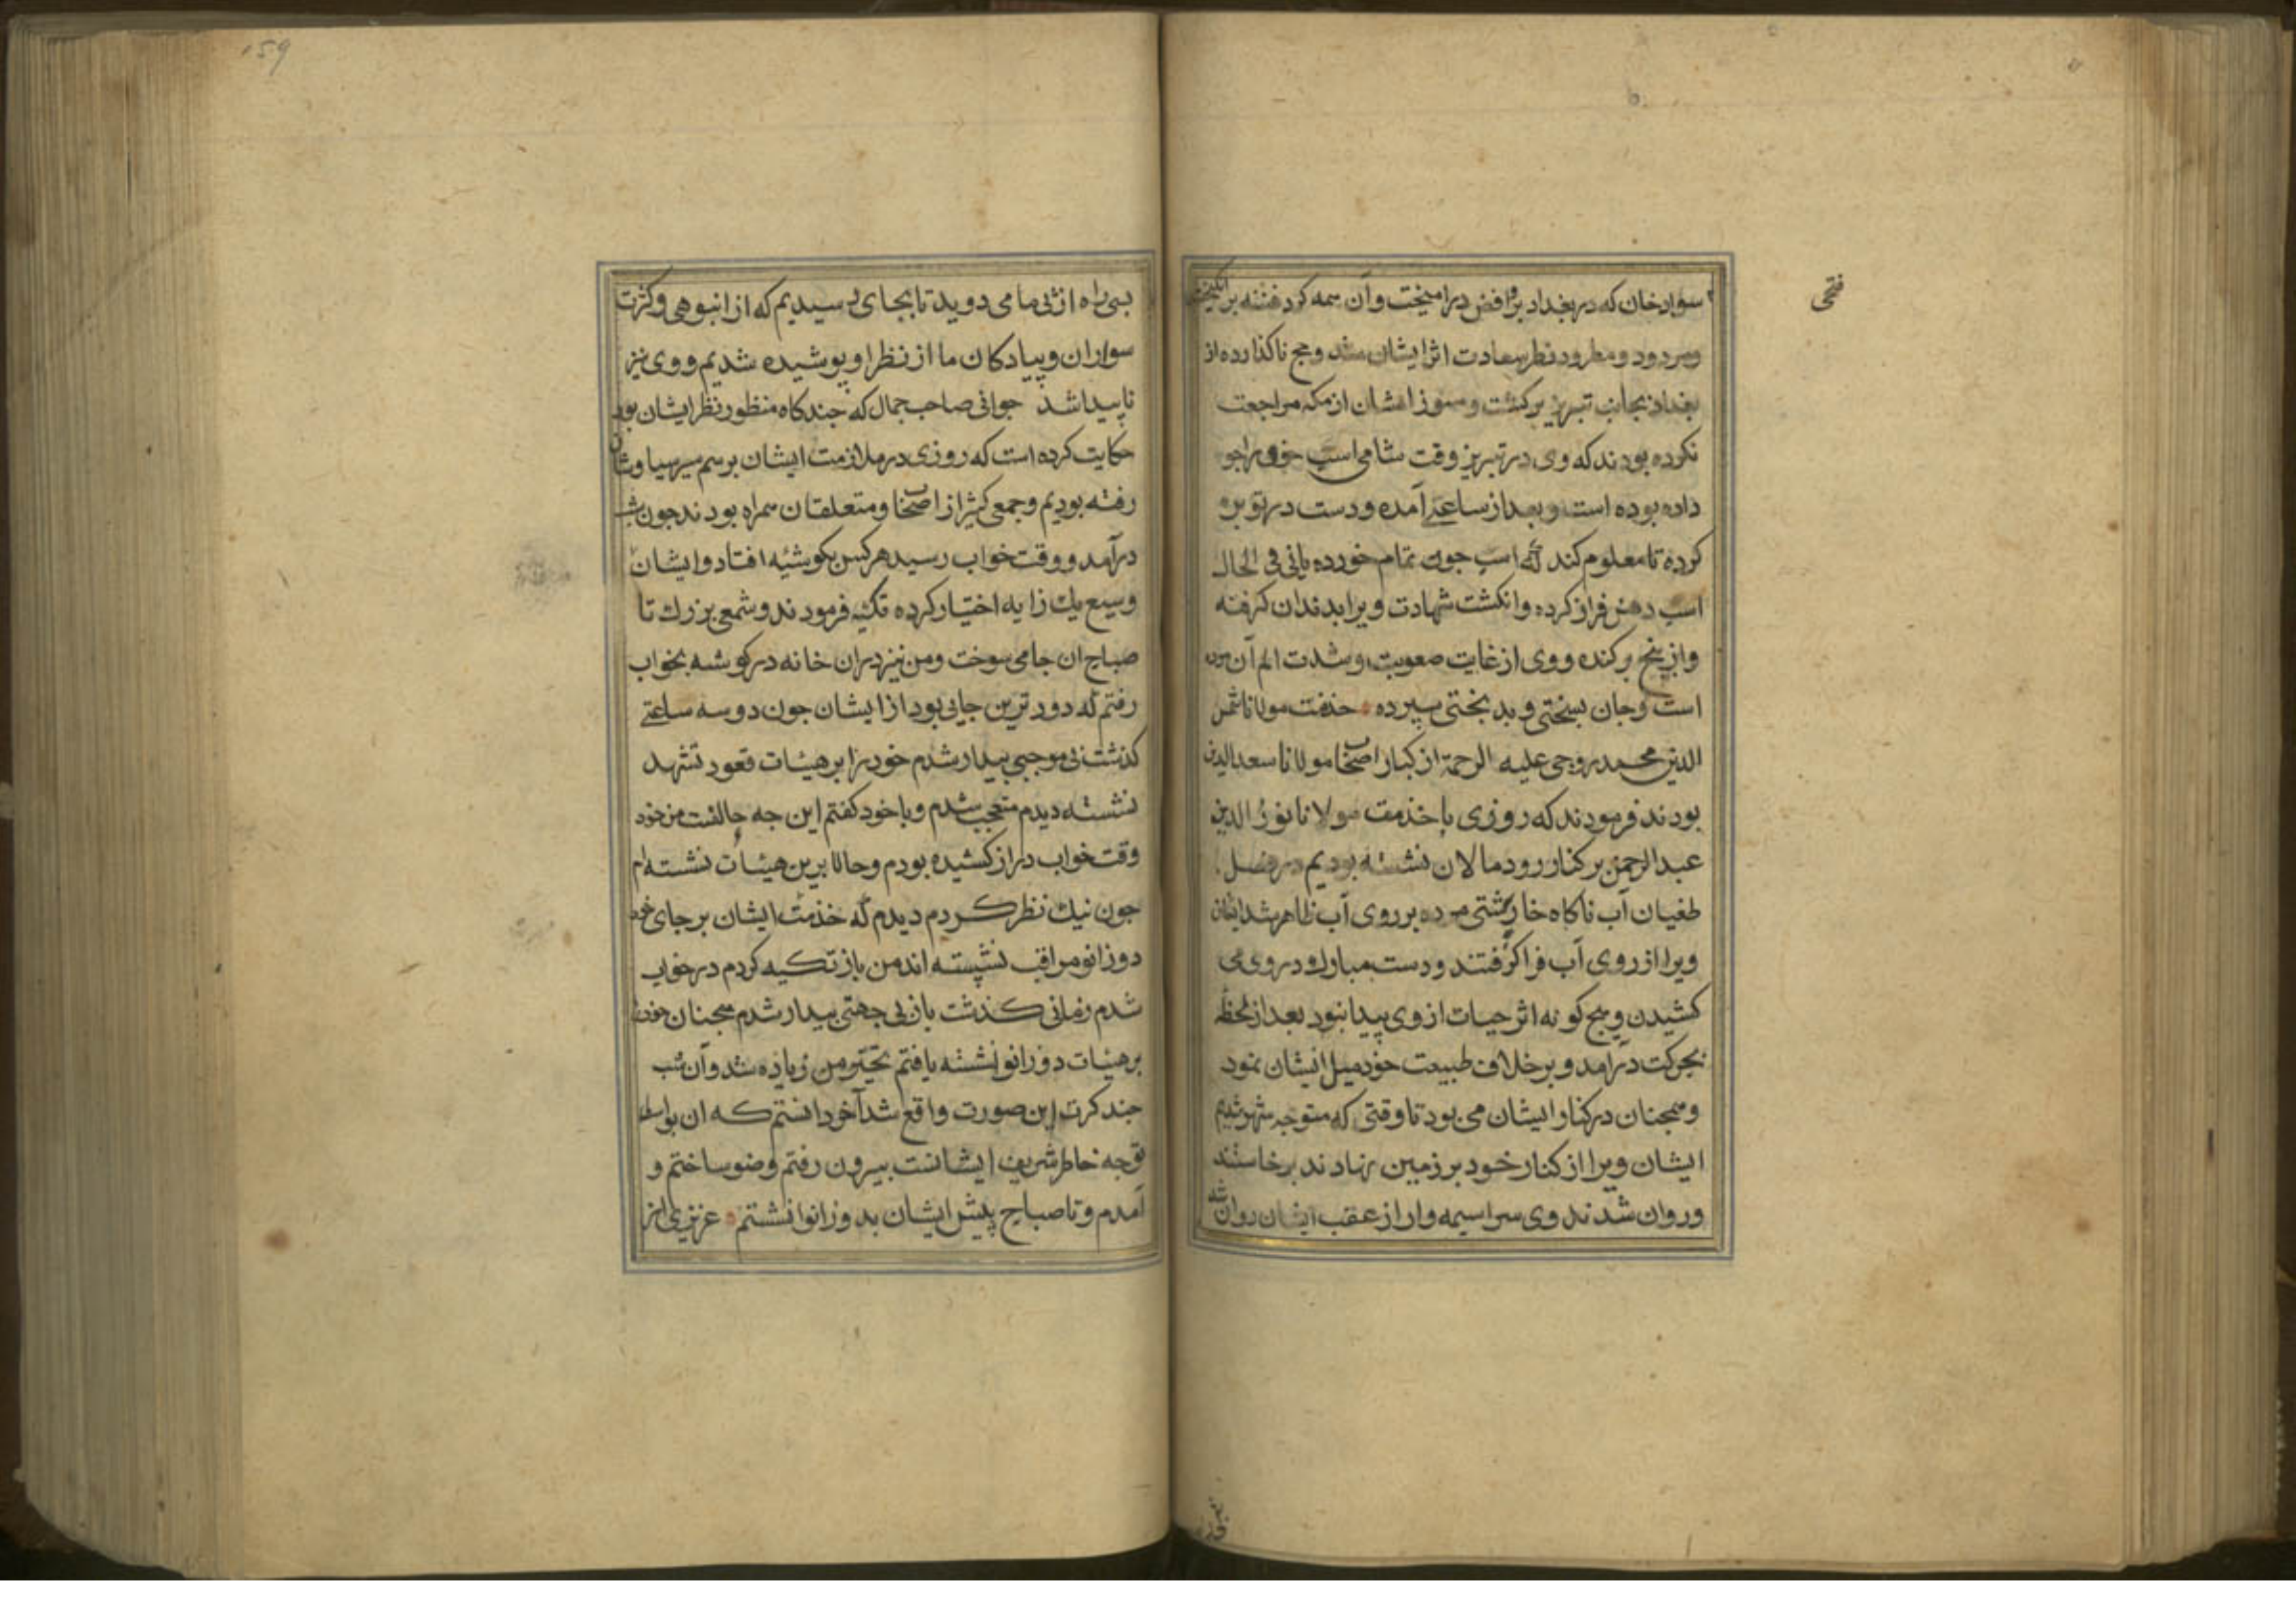 فتحی
سوارخان که در بغداد بروافض درآمیخت و آن همه کرد فتنه برانکیخت
ومردود و مطرود نظر سعادت اثر ایشان شد و حج ناکذارده از
بغداد بجانب تبریز برکشت و هنوز ایشان از مکه مراجعت
نکرده بودند که وی در تبریز وقت شامی اسب خود را جو
داده بوده است و بعد از ساعتی آمده و دست در توبره
کرده تا معلوم کند که اسب جون تمام خورده یا نی فی الحال
اسب دهن فراز کرده و انکشت شهادت ویرا بدندان کرفته
و از بیخ برکنده و وی از غایت صعوبت و شدت الم آن مرده
است و جان بسختی و بدبختی سپرده خدمت مولانا شمس
الدین محمد روجی علیه الرحمة از کبار اصحاب مولانا سعد الدین
بودند فرمودند که روزی با خدمت مولانا نور الدین
عبد الرحمن بر کنار رود مالان نشسته بودیم در فصل
طغیان آب ناکاه خارپشتی مرده بر روی آب ظاهر شد ایشان
ویرا از روی آب فرا کرفتند و دست مبارک در وی می
کشیدن و هیج کونه اثر حیات از وی پیدا نبود بعد از لحظه
بحرکت درامد و بر خلاف طبیعت خود میل ایشان نمود
و همجنان در کنار ایشان می بود تا وقتی که متوجه شهر شدیم
ایشان ویرا از کنار خود بر زمین نهادند برخاستند
و روان شدند وی سراسیمه وار از عقب ایشان روان شد
159
بسی راه از پی ما می دوید تا بجای رسیدیم که از انبوهی و کثرت
سواران و پیادکان ما از نظر او پوشیده شدیم و وی نیز
ناپیدا شد جوانی صاحب جمال که جندکاه منظور نظر ایشان بود
حکایت کرده است که روزی در ملازمت ایشان برسم سیر سیاوشان
رفته بودیم و جمعی کثیر از اصحاب و متعلقان همراه بودند جون شب
درآمد و وقت خواب رسید هر کس بکوشئه افتاد و ایشان
وسیع یک زایه اختیار کرده تکیه فرمودند و شمعی بزرک تا
صباح ان جا می سوخت و من نیز دران خانه در کوشه بخواب
رفتم که دورترین جایی بود از ایشان جون دو سه ساعتی
کذشت بی موجبی بیدار شدم خود را بر هیئات قعود تشهد
نشسته دیدم متعجب شدم و با خود کفتم این جه حالتست من خود
وقت خواب دراز کشیده بودم و حالا برین هیئات نشسته ام
جون نیک نظر کردم دیدم که خدمت ایشان بر جای خود
دوزانو مراقب نشسته اند من باز تکیه کردم در خواب
شدم زمانی کذشت باز بی جهتی بیدار شدم همجنان خود را
بر هیئات دوزانو نشسته یافتم تحیر من زیاده شد و آن شب
جند کرت این صورت واقع شد آخر دانستم که ان بواسطه
توجه خاطر شریف ایشانست بیرون رفتم وضو ساختم و
آمدم و تا صباح پیش ایشان بدوزانوا نشستم عزیزی از